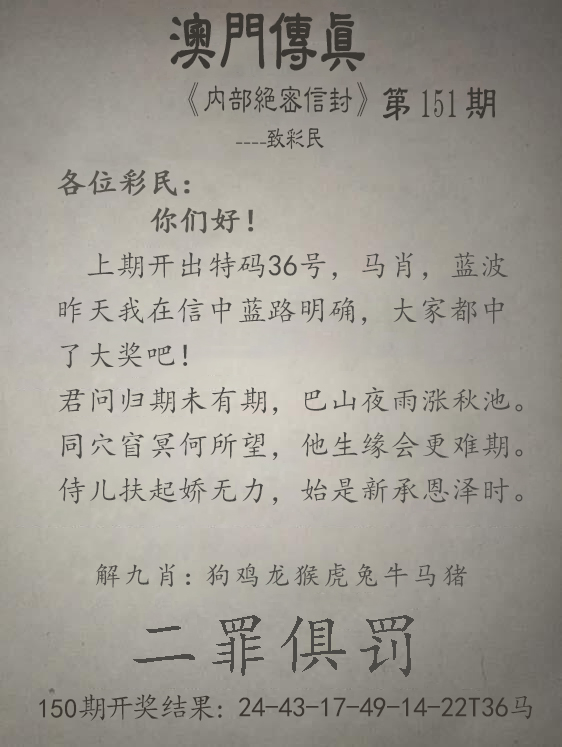 澳門傳眞
《内部絕密信封》第151期
----致彩民
各位彩民：
你们好！
上期开出特码36号，马肖，蓝波
昨天我在信中蓝路明确，大家都中
了大奖吧！
君问归期未有期，巴山夜雨涨秋池。
同穴窅冥何所望，他生缘会更难期。
侍儿扶起娇无力，始是新承恩泽时。
解九肖：狗鸡龙猴虎兔牛马猪
二罪俱罚
150期开奖结果：24-43-17-49-14-22T36马